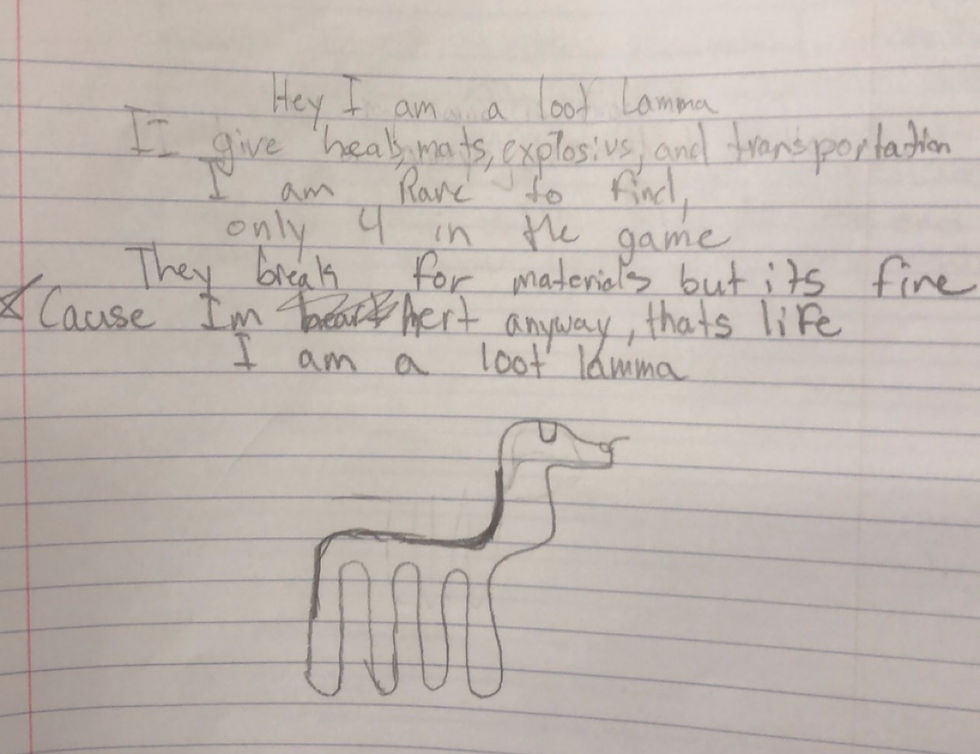 Hey I am a loot Lamma
II give heals, mats, explosivs, and transportation
I am Rare to find,
only 4 in the game
They break for materials but its fine
Cause Im hert anyway, thats life
I am a loot lamma